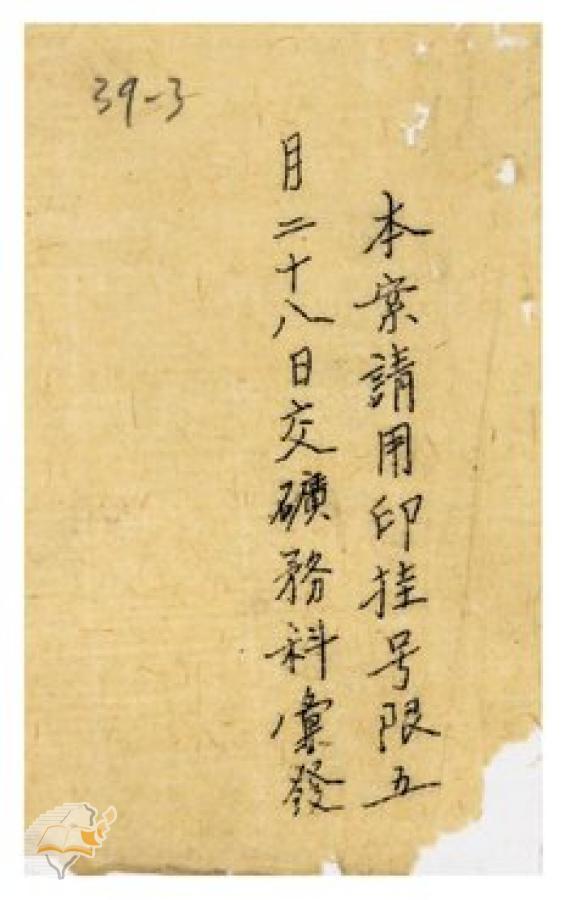 39-3
本案請用印挂号限五
月二十八日交礦務科彙發